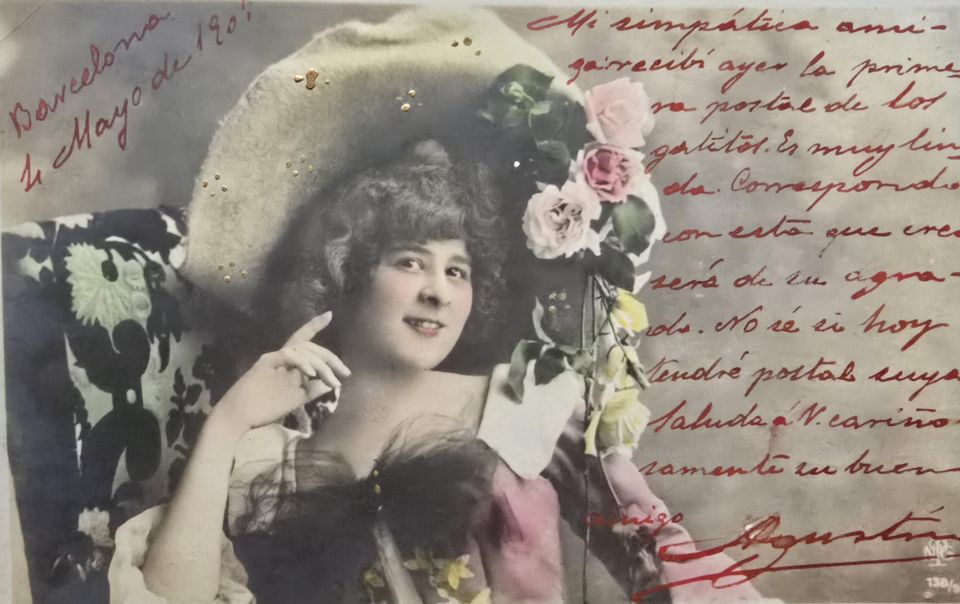 Barcelona
4 Mayo de 190
Mi simpática ami-
ga: recibí ayer la prime-
ra postal de los
gatitos. Es muy lin-
da. Correspondo
con esta que creo
será de su agra-
do. No sé si hoy
tendré postal suya
Saluda á V. cariño-
samente su buen
amigo
Agustín
NPG